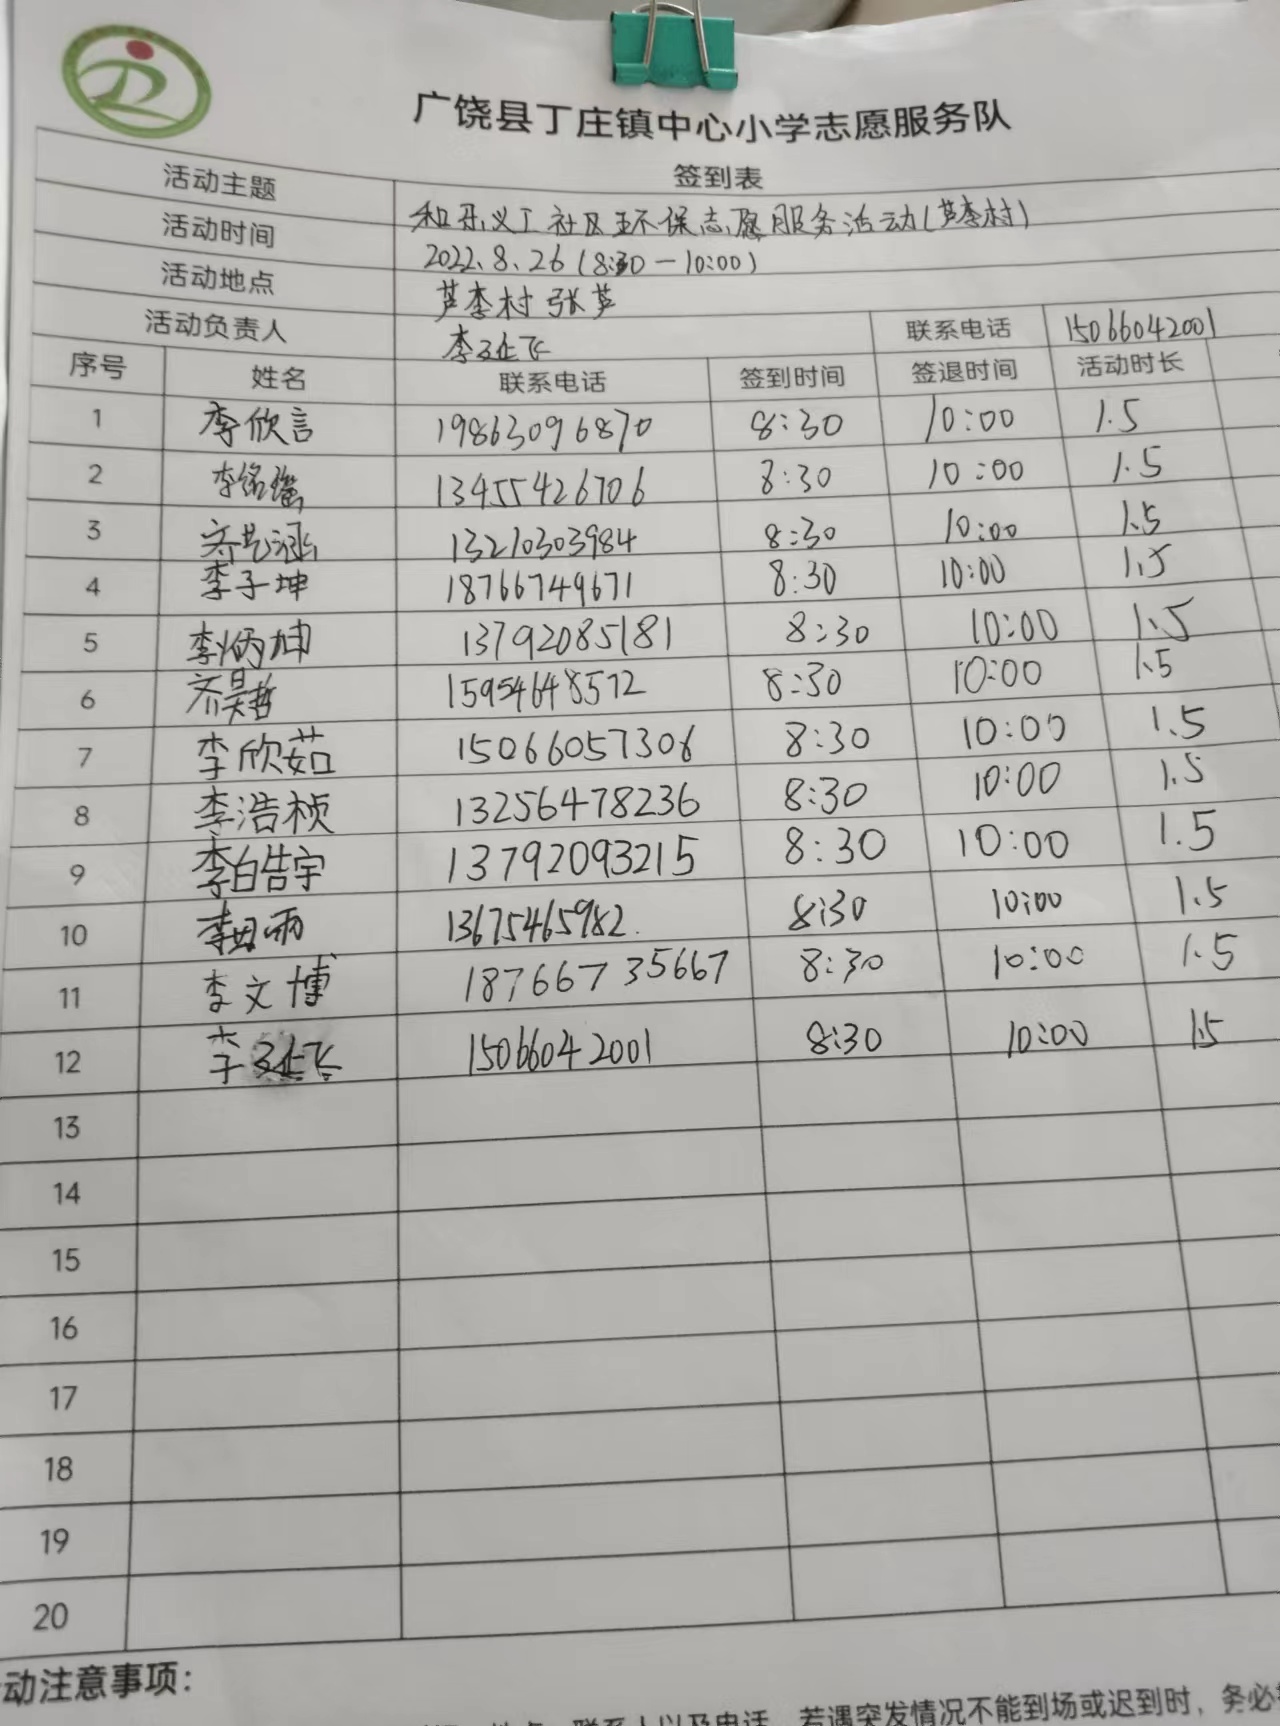 广饶县丁庄镇中心小学志愿服务队
签到表
活动主题 和乐义工社区环保志愿服务活动(芦李村)
活动时间 2022.8.26(8:30-10:00)
活动地点 芦李村
活动负责人 联系电话 15066042001
序号 姓名 联系电话 签到时间 签退时间 活动时长
1 李欣言 19863096870 8:30 10:00 1.5
2 李铭瑶 13455426706 8:30 10:00 1.5
3 齐艺涵 13210303984 8:30 10:00 1.5
4 李子坤 18766749671 8:30 10:00 1.5
5 李炳坤 13792085181 8:30 10:00 1.5
6 齐昊哲 15954648572 8:30 10:00 1.5
7 李欣茹 15066057306 8:30 10:00 1.5
8 李浩桢 13256478236 8:30 10:00 1.5
9 李皓宇 13792093215 8:30 10:00 1.5
10 13675465982. 8:30 10:00 1.5
11 李文博 18766735667 8:30 10:00 1.5
12 15066042001 8:30 10:00 1.5
13
14
15
16
17
18
19
20
动注意事项:
联系人以及电话 若遇突发情况不能到场或迟到时,务必